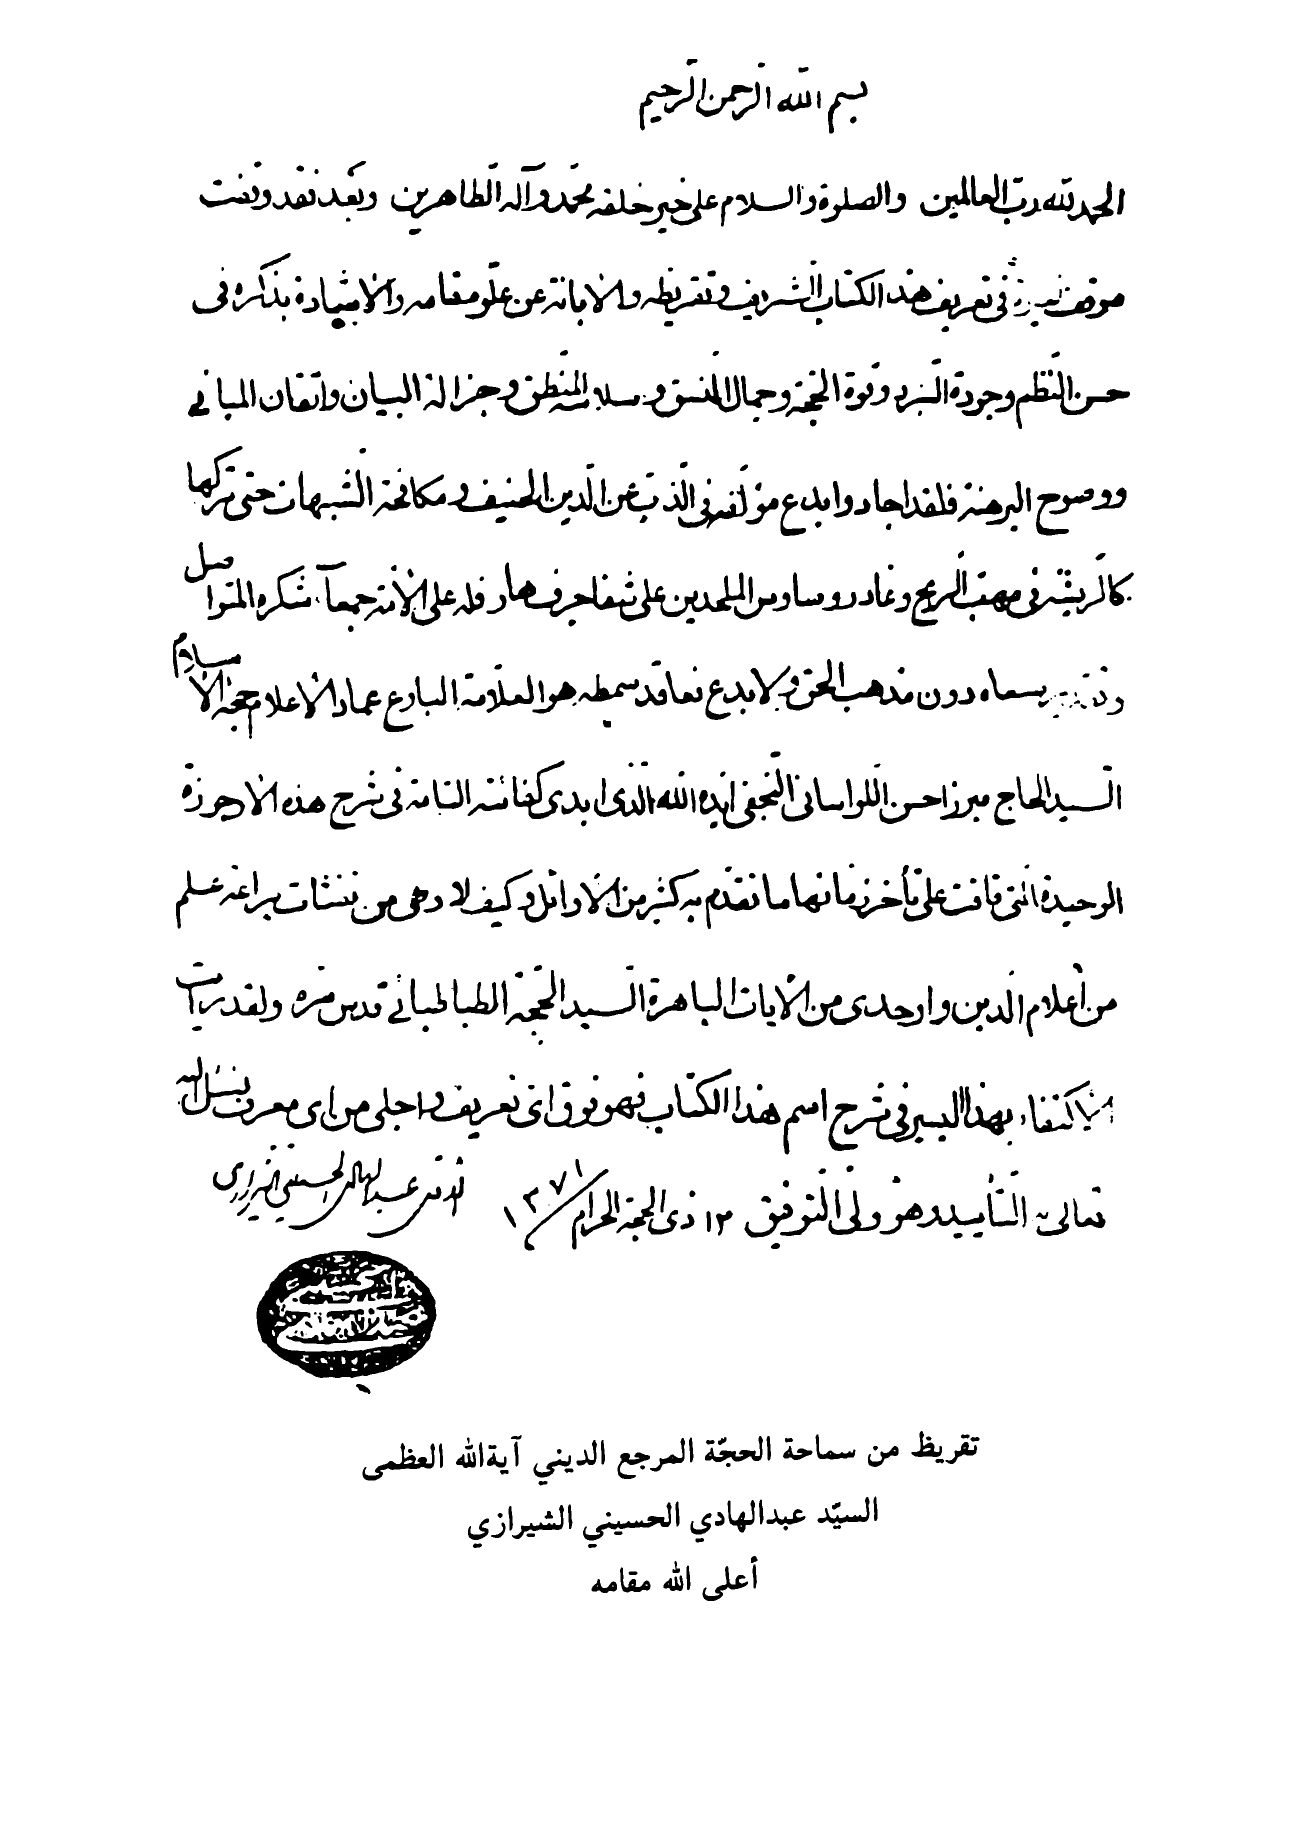 بسم الله الرحمن الرحيم
الحمد لله ربّ العالمين والصلوة والسلام على خير خلقه محمّد وآله الطاهرين وبعد فقد وقفت
موقف في تعريف هذا الكتاب الشريف وتقريظه والابانة عن علوّ مقامه والاشادة بذكره في
حسن النظم وجودة السّرد وقوة الحجّة وجمال النسق وسلامة المنطق وجزالة البيان واتقان المباني
ووضوح البرهنة فلقد اجاد وابدع مؤلّفه في الذّبّ عن الدين الحنيف ومكافحة الشّبهات حتى تركها
كالرّيشة في مهبّ الريح وغادر وساوس الملحدين على شفا جرف هار فله على الامّة جمعآء شكره المتواصل
مسعاه دون مذهب الحق ولا بدع فعاقد سمطه هو العلّامة البارع عماد الاعلام حجّة الاسلام
السيد الحاج ميرزا حسن اللواساني النّجفي ايّده الله الذى ابدى كفائته التامة في شرح هذه الارجوزة
الوحيدة التى فاقت على تأخر زمانها ما تقدم به كثير من الاوائل وكيف لا وهى من نفثات يراعة علم
من أعلام الدين واوحدى من الآيات الباهرة السيد الحجّة الطباطبائي قدس سره ولقد رأيت
الاكتفاء بهذا اليسير في شرح اسم هذا الكتاب فهو فوق اىّ تعريف واجلى من اى معرف نسئل الله
تعالى له التّأييد وهو ولىّ التّوفيق ١٢ ذى الحجة الحرام ١٣٧١
عبد الهادى الحسينى الشيرازى
تقريظ من سماحة الحجّة المرجع الديني آيةالله العظمى
السيّد عبدالهادي الحسيني الشيرازي
أعلى الله مقامه